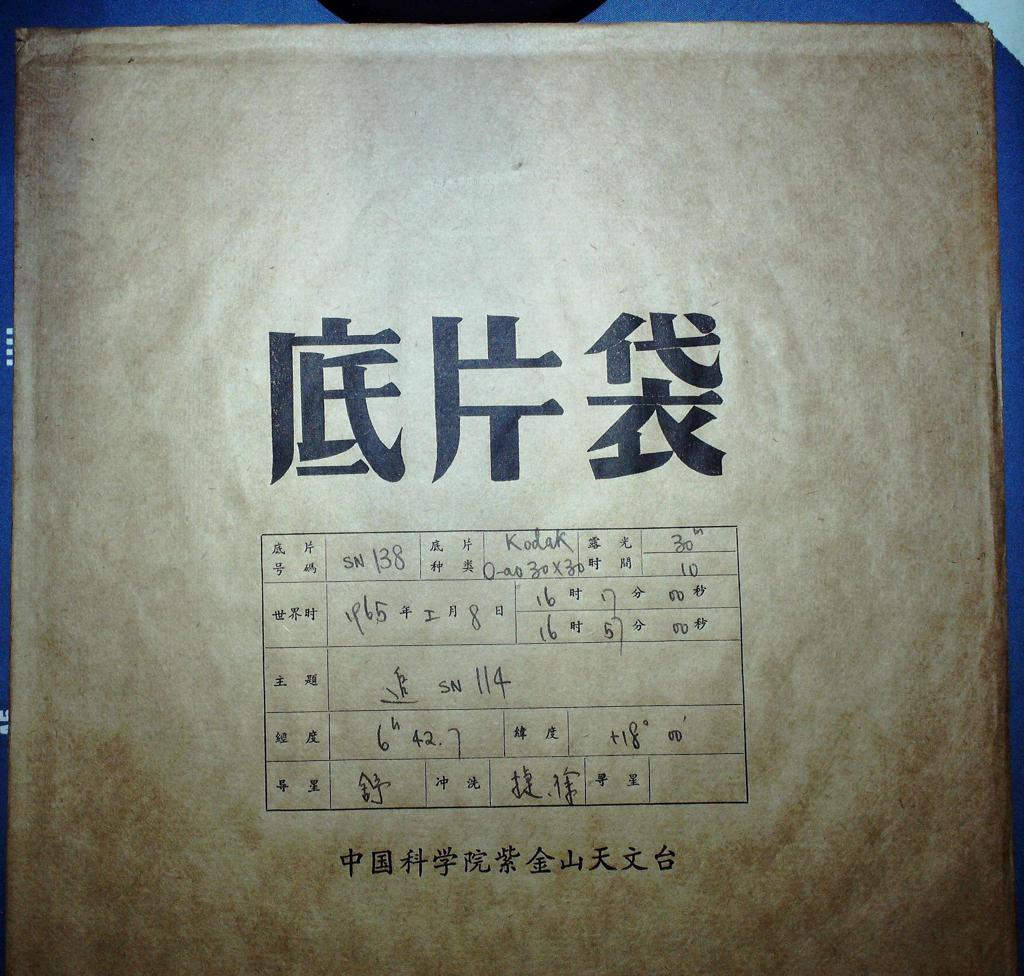 底片袋
底片号碼 SN 138 底片种类 Kodak O-ao 30X30 露光时間 30m 10
世界时 1965 年 I 月 8 日 16 时 17 分 00 秒
16 时 57 分 00 秒
主題 追 SN 114
經度 6h 42.7 緯度 +18° 00'
导星 舒 冲洗 徐 寻星
中国科学院紫金山天文台